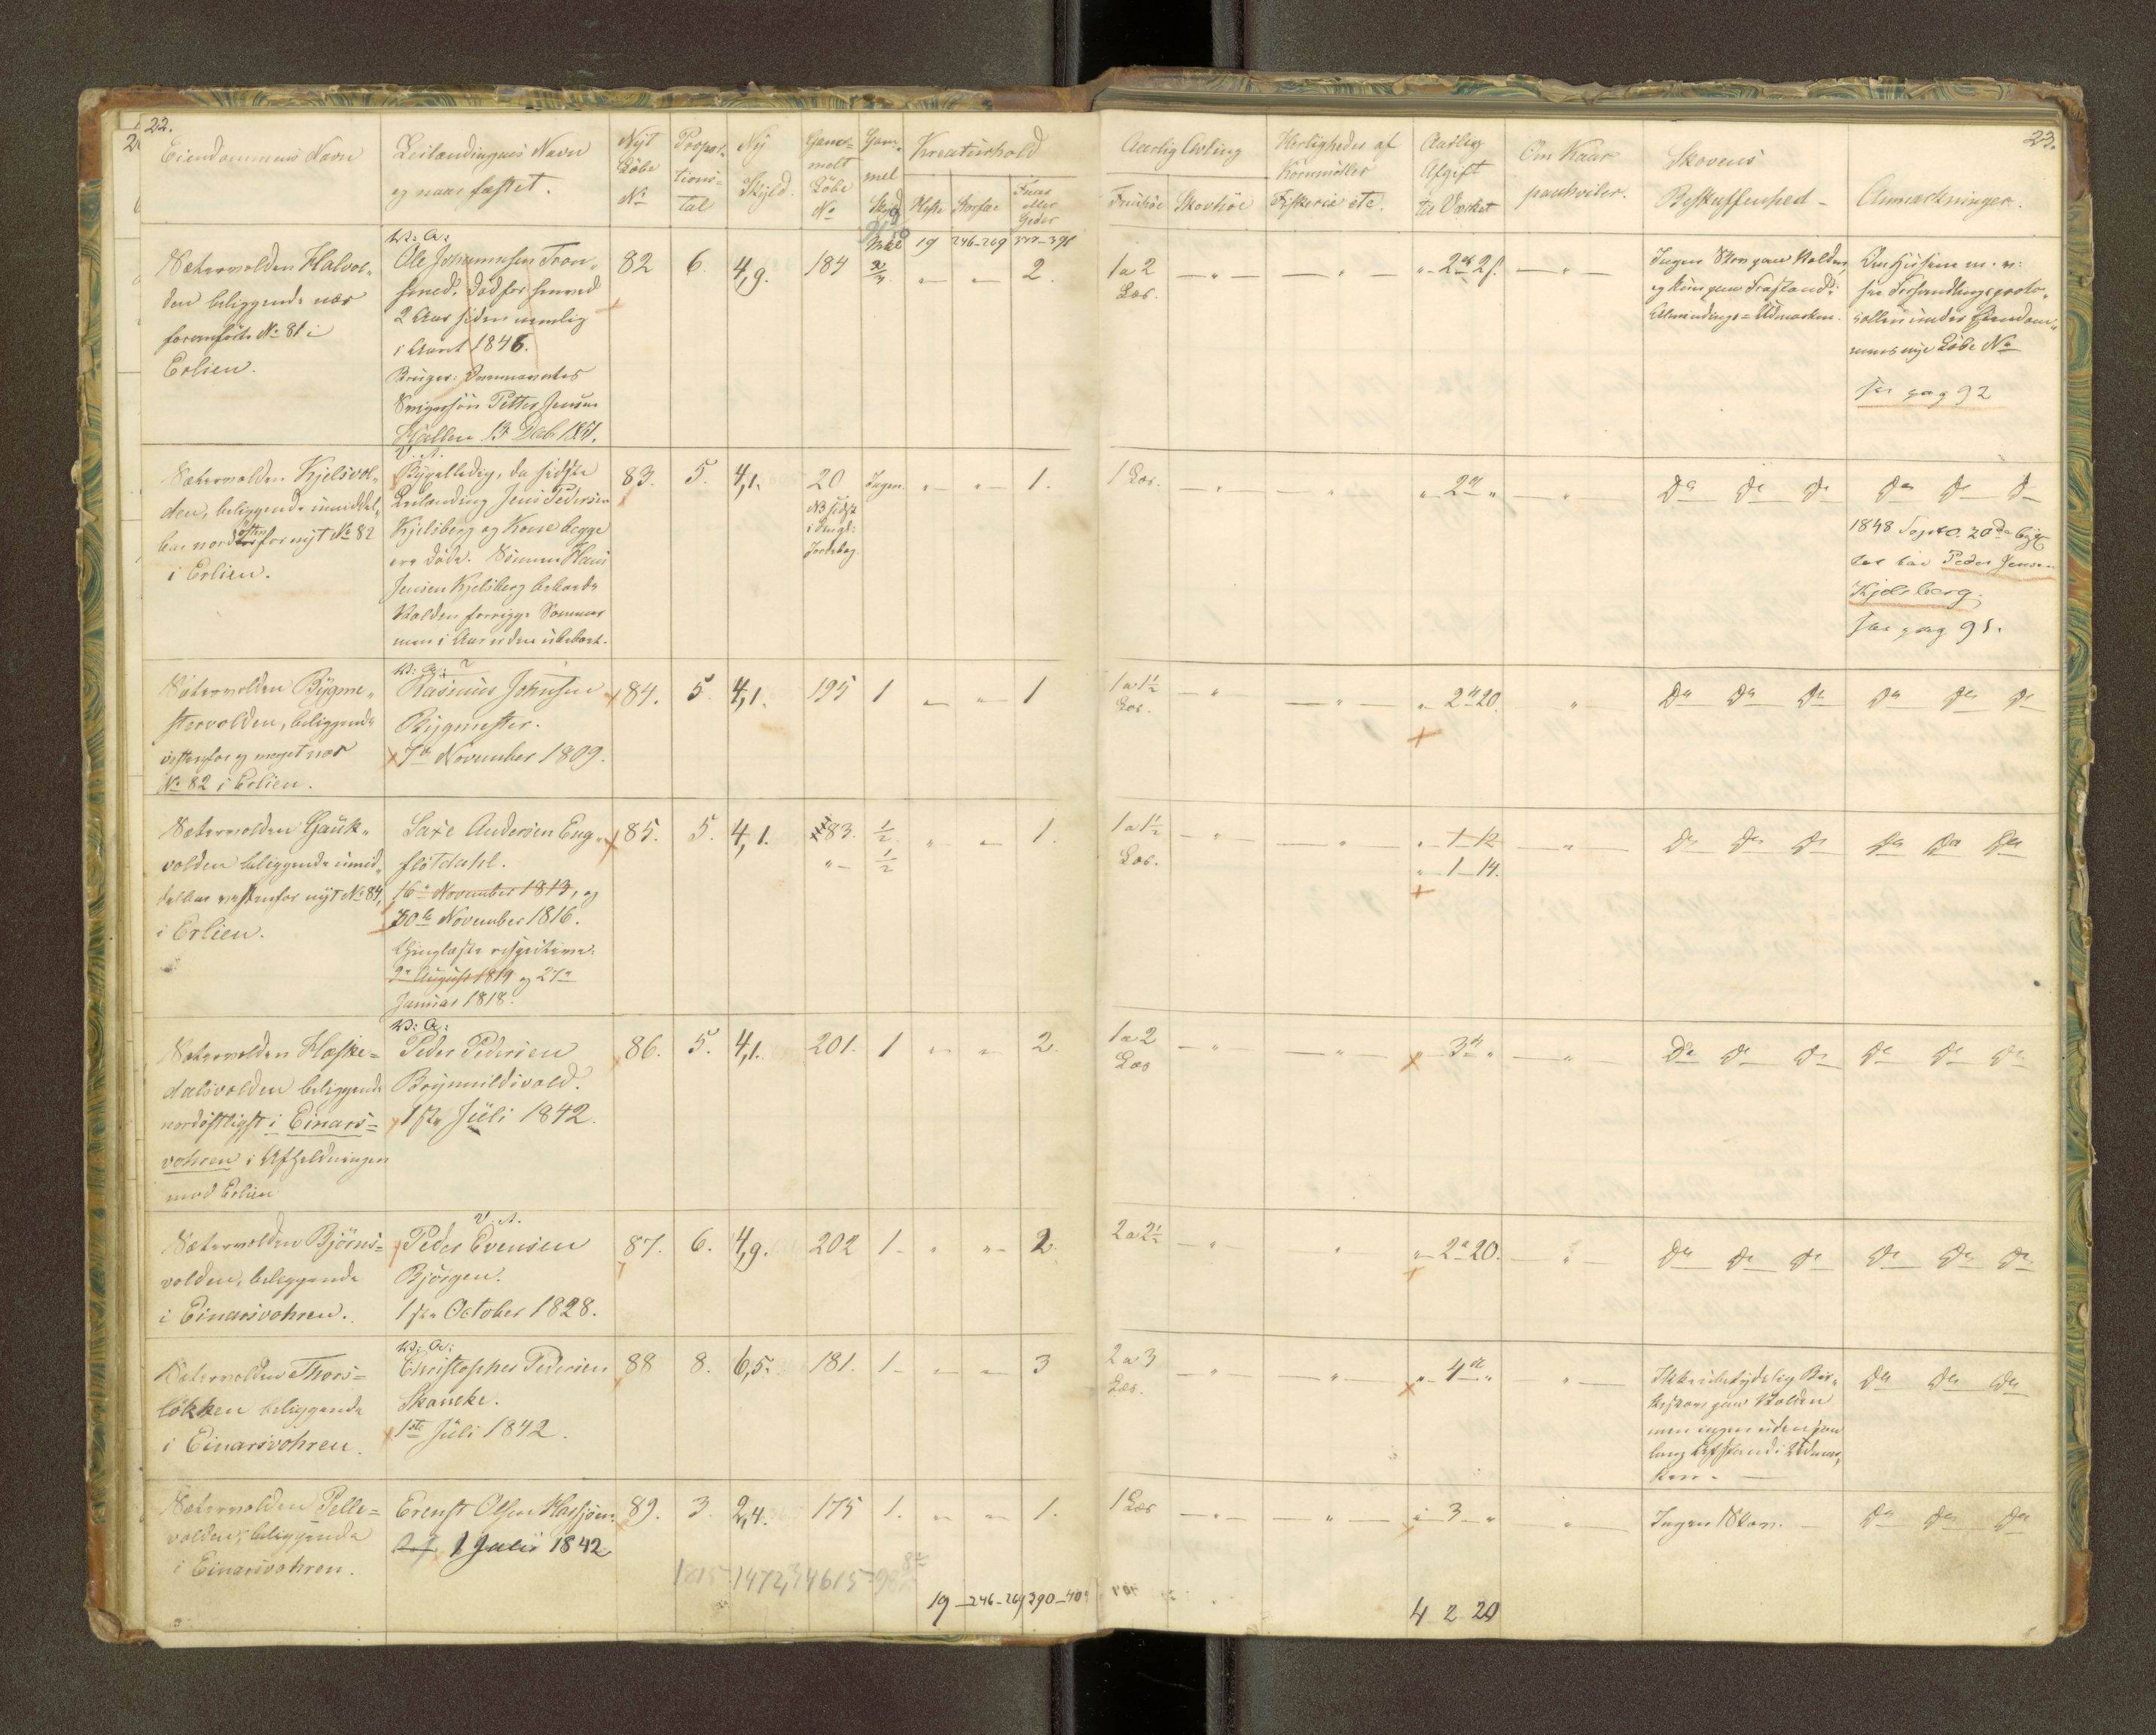 22.
Eiendommens Navn
Leilændingens Navn
og naar fæstet.
Nÿt
Löbe
No
Propor-
tions-
tal
Nÿ
Skÿld.
Gam-
melt
Löbe
No
Gam-
mel
Skyld
Kreaturhold
Heste
Storfæ
Faar
eller
Geder
19 246-269
Sætervolden Halvol-
den beliggende nær
foranförte No 81 i
Erlien.
W: A:
Ole Johannesen Tron-
2 Aar siden nemlig
i Aaret 1846.
Bruger:
Svigersön Petter Jensen
Hallen 13 Deb 1851.
82
6.
4,9.
184
2.
Sætervolden Kjelsvol-
den, beliggende umiddel-
bar nordöstenfor nÿt No 82
i Erlien.
V. A.
Bÿgselledig, da sidste
Leilænding Jens Pedersen
Kjelsberg og Kone begge
ere döde. Sönnen Hans
Jensen Kjelsberg
Volden forrige Sommer
men i Aar er den ubeboet.
83.
5.
4,1.
20
NB sidst
i
Jordebog
Ingen.
1.
Sætervolden Bÿgme-
stervolden, beliggende
vestenfor og meget nær
No 82 i Erlien.
W: A:
Rasmus Johnsen
Bÿgmester.
7de November 1809.
84.
5.
4,1.
195
1
1
Sætervolden Gauk-
volden beliggende umid-
delbar vestenfor nÿt No 84,
i Erlien.
Saxe Andersen Eng-
flötdahl.
16de November 1813, og
30te November 1816.
Thinglæste respective.
2de August 1814 og 27de
Januar 1818.
85.
5.
4,1.
183.
1/2
1/2
1.
Sætervolden Hæske-
dalsvolden beliggende
nordöstligst i Einars-
vohren i Afheldningen
mod Erlien
W: A:
Peder Pedersen
Brÿnnildsvold.
1ste Jüli 1842.
86.
5.
4,1.
201.
1
2.
Sætervolden Björns-
volden, beliggende
i Einarsvohren.
V. A.
Peder Evensen
Björgen.
1ste October 1828.
87.
6.
4,9.
202
1
2.
Sætervolden Thors-
lökken beliggende
i Einarsvohren.
W: A:
Christopher Pedersen
Skancke.
1ste Jüli 1842.
88
8.
6,5.
181.
1
3
Sætervolden Pelle-
volden, beliggende
i Einarsvohren.
Erenst Olsen Hasjön.
1 Julii 1842
89.
3.
2,4.
175
1.
1.
19 246-269 390-409
23.
Aarlig Avling
Fruhöe
Skovhöe
Herligheder af
Kornmöller
Fiskerie etc.
Aarlig
Afgift
til Værket
Om Kaar
paahviler.
Skovens
Beskaffenhed
Anmærkninger.
1 a 2
Læs.
2 2 s.
Ingen Skov paa Volden
og kun paa Frastand i
Almindings-Udmarken.
Om Husene m. v:
see Forhandlingsproto-
collen under Eiendom-
mens nye Löbe No
See pag 92
1 Læs.
2
Do Do Do
Do Do Do
1848 Septo. 20de bÿg
Peder Jensen
Kjelsberg.
See pag 91.
1 a 1 1/2
Læs.
2 20.
Do Do Do
Do Do Do
1 a 1 1/2
Læs.
1 12
1 14.
Do Do Do
Do Do Do
1 a 2
Læs
3
Do Do Do
Do Do Do
2 a 2 1/2
2 20.
Do Do Do
Do Do Do
2 a 3
Læs.
4
Ikke ubetydelig Bir-
keskov paa Volden
men ingen uden paa
lang Afstand i Udmar-
ken.
Do Do Do
1 Læs
3
Ingen Skov.
Do Do Do
4 2 20